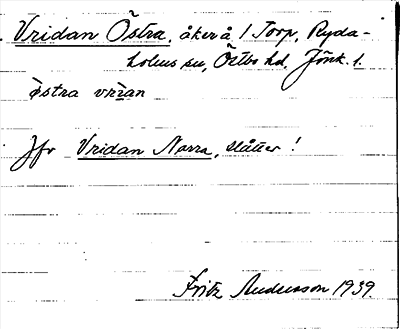 Vridan Östra, åker å 1 Torp, Ryda-
holms sn, Östbo hd, Jönk. l.
östra vrìan
Jfr Vridan Norra, slåtter!
Fritz Andersson 1939.